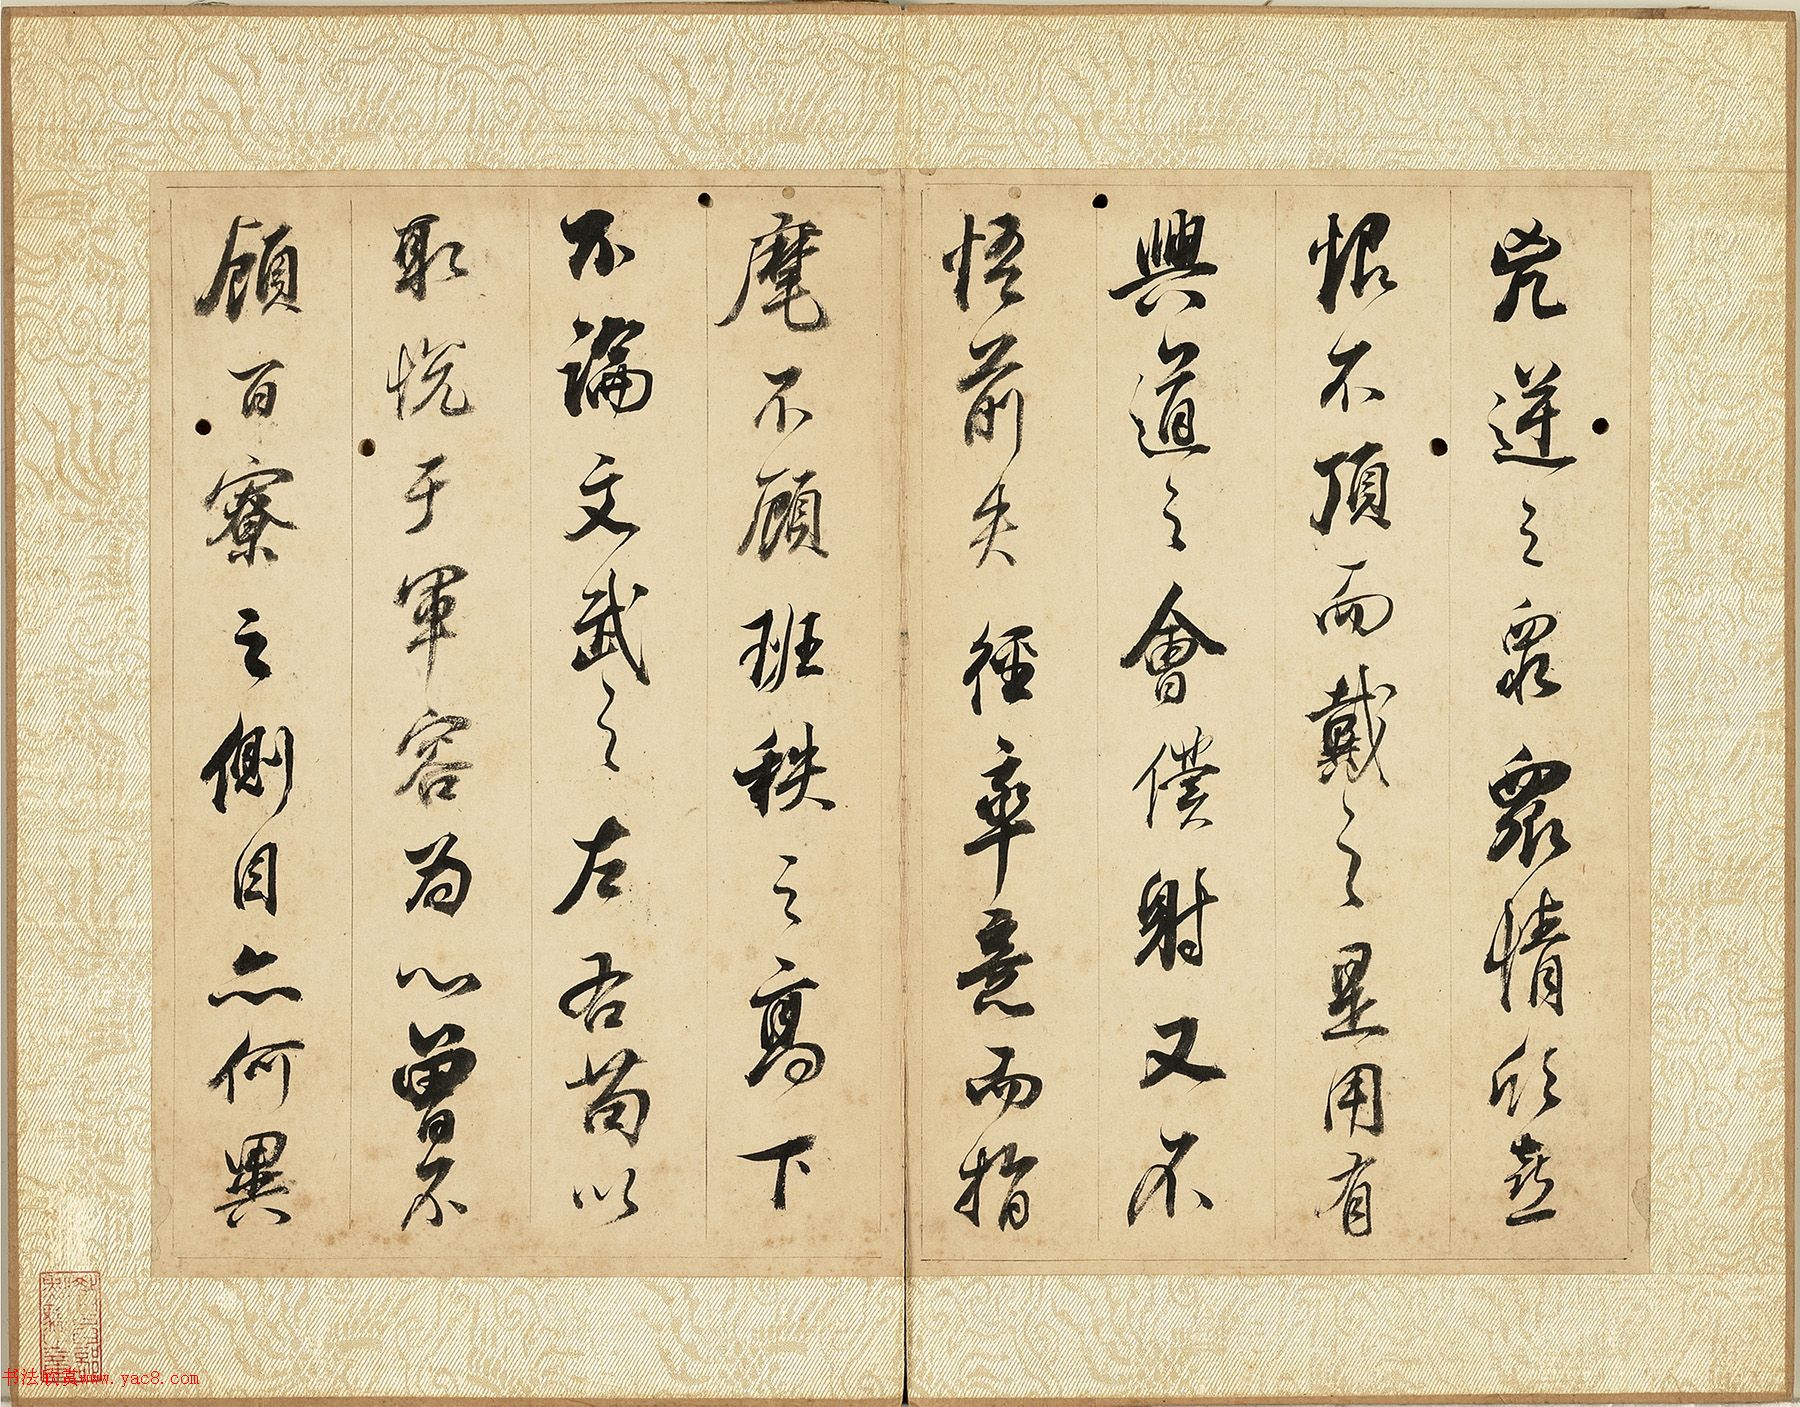 兇逆之眾眾情欣喜
恨不頂而戴之是用有
興道之會僕射又不
悟前失徑率意而指
麾不顧班秩之高下
不論文武之左右苟以
取悅于軍容為心曾不
顧百寮之側目亦何異
书法欣赏www.yac8.com